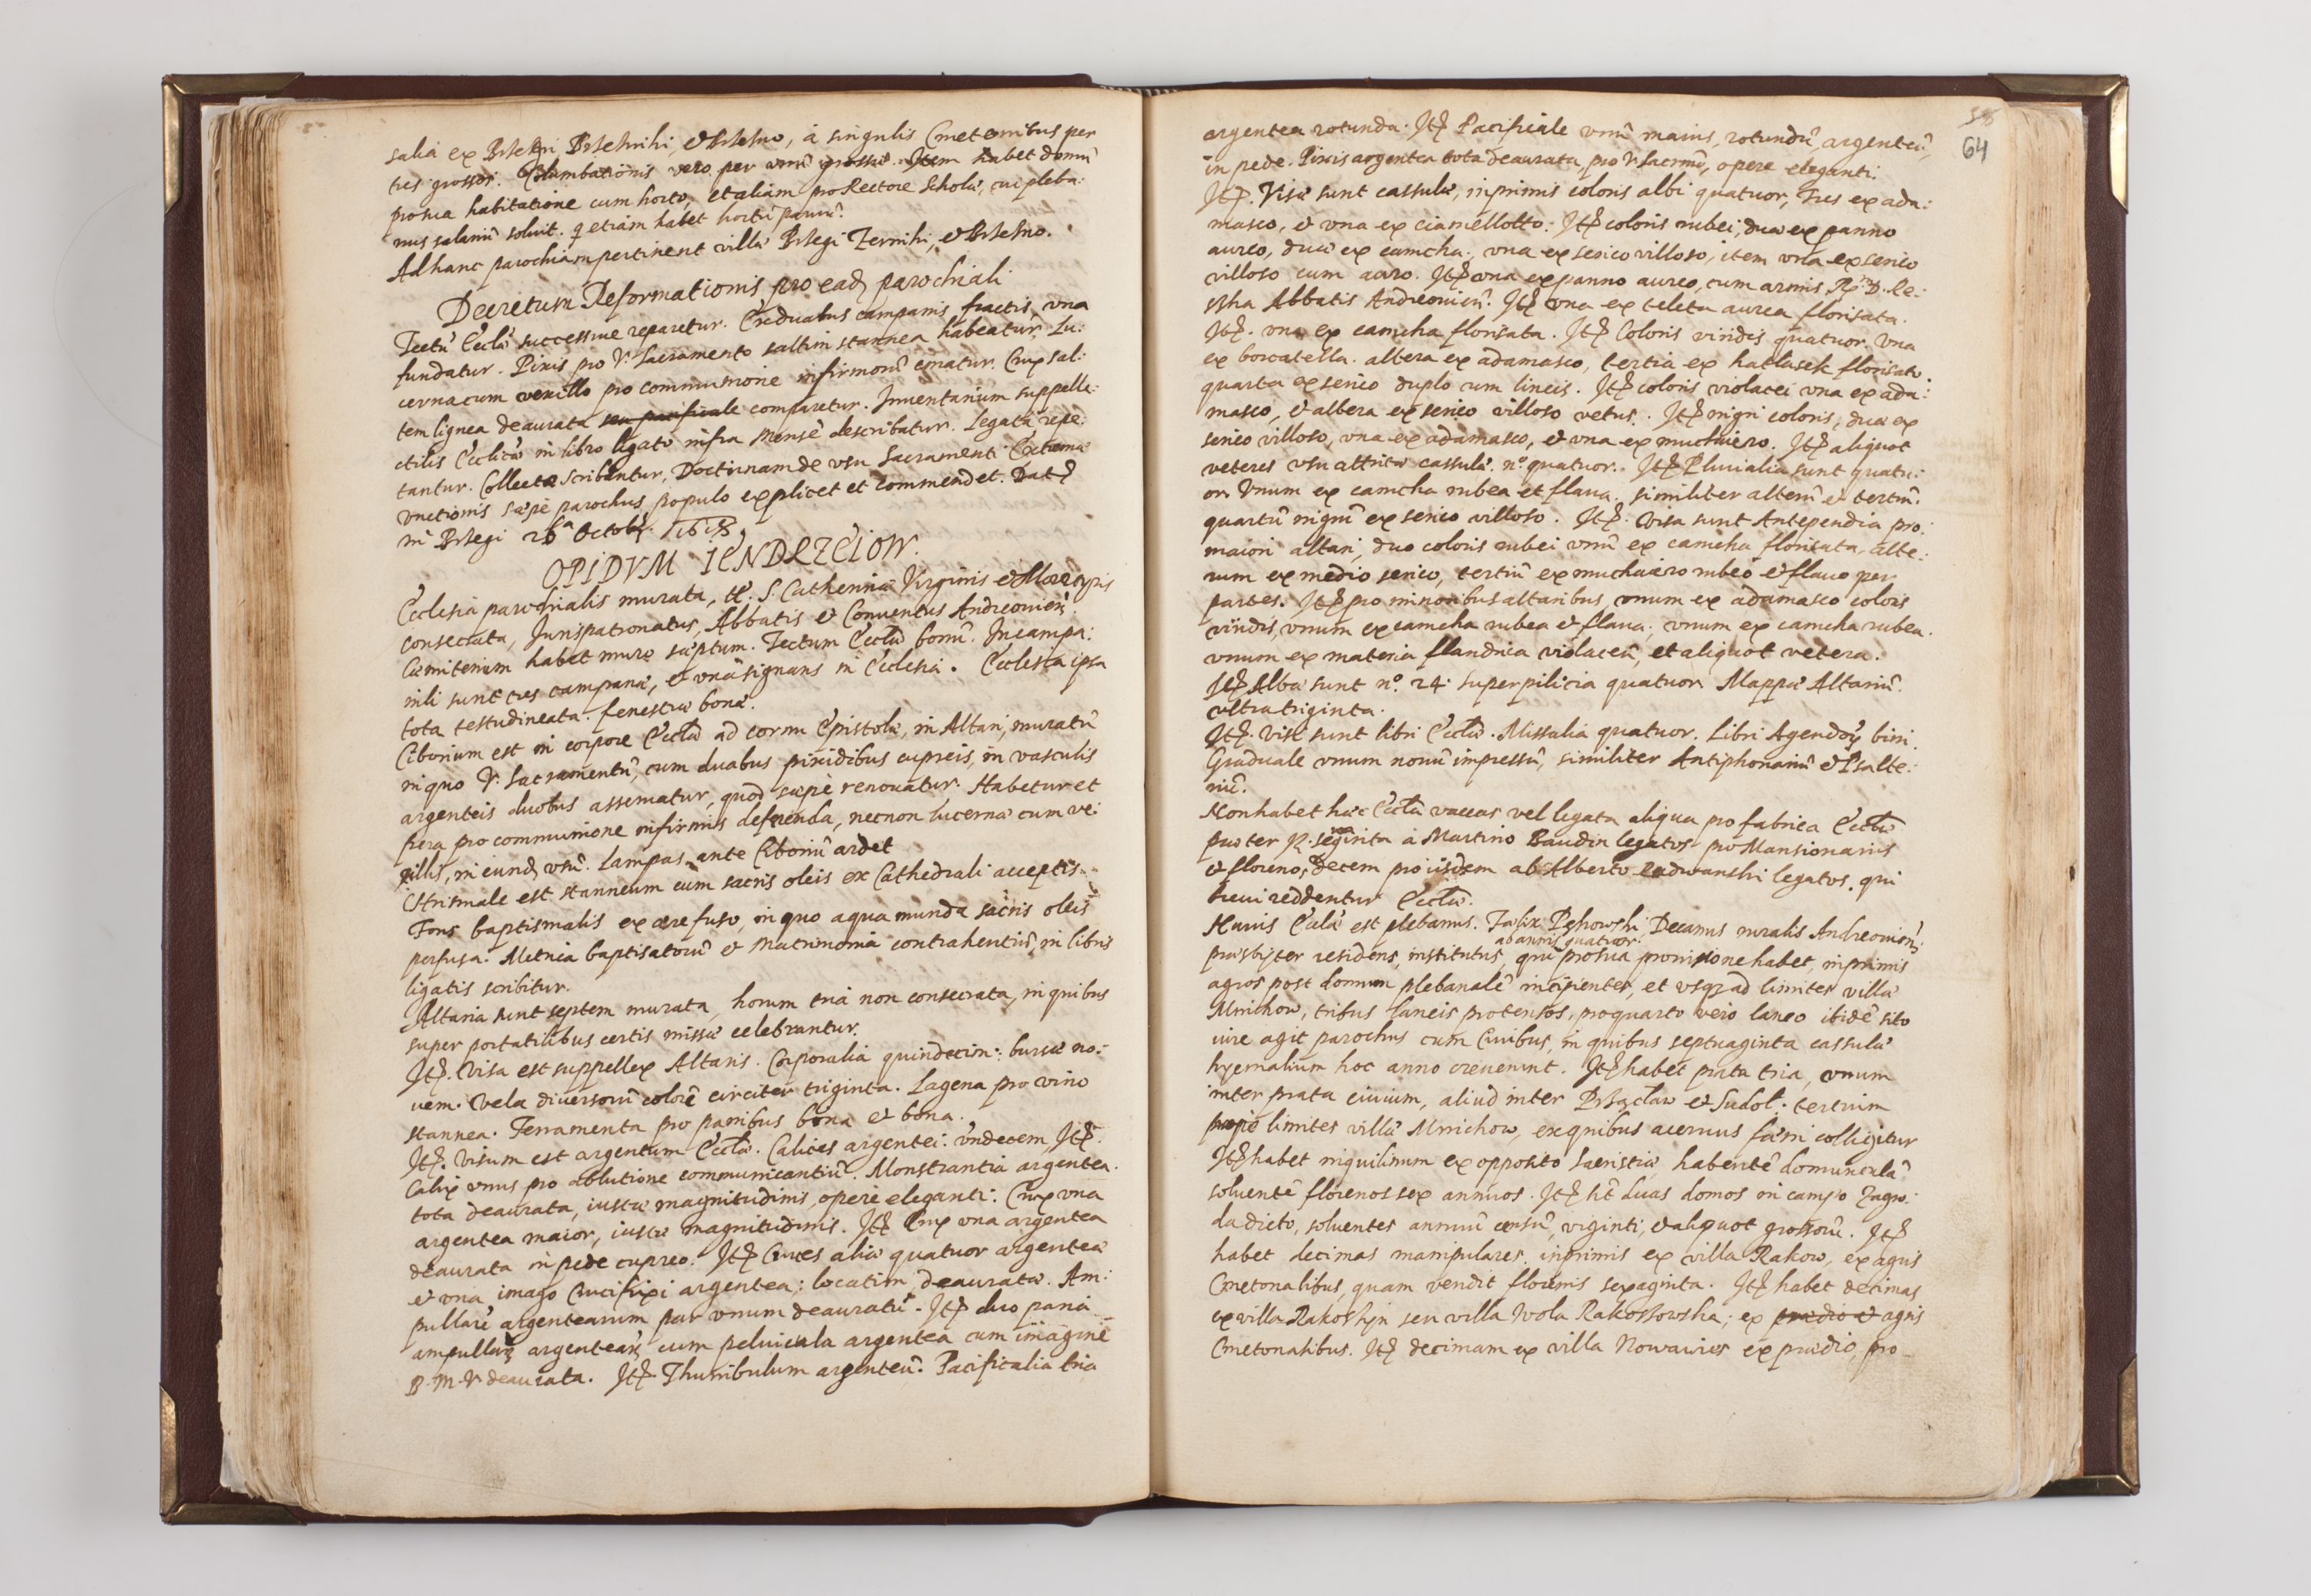 salia ex Brsegi Brsesnihi, & Brsesno, à singulis Cmetonibus per
tres grossos. Columbationis vero per unũ grossũ. Item habet domũ
pro sua habitatione cum horto, et aliam pro Rectore Scholæ, cui pleba:
nus salariũ soluit. q etiam habet hortũ paruũ.
Ad hanc parochiam pertinent villæ Brsegi Zernihi, & Brsesno.
Decretum Reformationis pro ead parochiali
Tectũ Eccliæ successiue reparetur. Ex duabus campanis fractis, vna
fundatur. Pixis pro V. Sacramento saltim stannea habeatur. Lu:
cerna cum vexillo pro communione infirmorũ ematur. Crux sal:
tem lignea deaurata seu pacificale comparetur. Inuentarium suppelle:
ctilis Eccliæ in libro ligato infra mensẽ describatur. Legata repe:
tantur. Collecta scribantur, Doctrinam de vsu Sacramenti Extremæ
vnctionis sæpe parochus populo explicet et commendet. Dat
in Brsegi 26ª Octobr. 1618.
OPIDVM IENDRZEIOW.
Ecclesia parochialis murata, tt. S. Catherinæ Virginis & Martyris
consecrata, Iurispatronatus, Abbatis & Conuentus Andreouien.
Cæmiterium habet muro sæptum. Tectum Eccliæ bonũ. In campa:
nili sunt tres campanæ, & vna signans in Ecclesia. Ecclesia ipsa
tota testudineata. fenestræ bonæ.
Ciborium est in corpore Eccliæ ad cornu Epistolæ, in Altari, muratũ
in quo V. Sacramentũ, cum duabus pixidibus cupreis, in vasculis
argenteis duobus asseruatur, quod sæpe renouatur. Habetur et
pera pro communione infirmis deferenda, necnon lucernæ cum ve:
xillis, in eund vsũ. Lampas ante Ciboriũ ardet
Chrismale est stanneum cum sacris oleis ex Cathedrali acceptis.
Fons baptismalis ex ære fuso, in quo aqua munda sacris oleis
perfusa. Metrica baptisatorũ & Matrimonia contrahentiũ, in libris
ligatis scribitur.
Altaria sunt septem murata, horum tria non consecrata, in quibus
super portatilibus certis missæ celebrantur.
It. Visa est suppellex Altaris. Corporalia quindecim. bursæ no:
uem. Vela diuersorũ colorẽ circiter triginta. Lagena pro vino
stannea. Ferramenta pro panibus bona & bona.
It. visum est argentum Eccliæ. Calices argentei vndecem, It.
Calix vnus pro ablutione communicantiũ. Monstrantia argentea
tota deaurata, iustæ magnitudinis, opere eleganti. Crux vna
argentea maior, iustæ magnitudinis. It Crux vna argentea
deaurata in pede cupreo. It Cruces aliæ quatuor argenteæ
& vna imago Crucifixi argentea; locatim deaurata. Am:
pullarũ argentearum par vnum deauratũ. It duo paria
ampullar argentear cum peluicula argentea cum imagine
B. M. V. deaurata. It Thuribulum argenteũ. Pacificalia tria
64
argentea rotunda. It Pacificale vnũ maius, rotundũ, argenteũ,
in pede. Pixis argentea tota deaurata, pro V. Sacrmto, opere eleganti.
It. Visæ sunt cassulæ, inprimis coloris albi quatuor, Tres ex ada:
masco, & vna ex ciamellotto. It coloris rubei, duæ ex panno
aureo, duæ ex camcha, vna ex serico villoso, item vna ex serico
villoso cum auro. It vna ex panno aureo, cum armis R. D. Re:
ssha Abbatis Andreouien. It vna ex teleta aurea florisata.
It. vna ex camcha florisata. It Coloris viridis quatuor. Vna
ex borcatella. altera ex adamasco, tertia ex hatlasek florisato
quarta ex serico duplo cum lineis. It coloris violacei vna ex ada:
masco, & altera ex serico villoso vetus. It nigri coloris, duæ ex
serico villoso, vna ex adamasco, & vna ex muchaiero. It aliquot
veteres vsu attritæ cassulæ nº quatuor. It Pluuialia sunt quatu:
or. Vnum ex camcha rubea et flaua, similiter alterũ & tertiũ.
quartũ nigrũ ex serico villoso. It. Visa sunt Antependia pro
maiori altari, duo coloris rubei vnũ ex camcha florisata, alte:
rum ex medio serico, tertiũ ex muchaiero rubeo & flauo per
partes. It pro minoribus altaribus, vnum ex adamasco coloris
viridis, vnum ex camcha rubea & flaua, vnum ex camcha rubea.
vnum ex materia flandrica violacea, et aliquot vetera.
It Albæ sunt nº. 24. superpilicia quatuor. Mappæ Altariũ
vltra triginta.
It. Visi sunt libri Eccliæ. Missalia quatuor. Libri Agendor bini.
Graduale vnum nouũ impressũ, similiter Antiphonariũ & Psalte:
riũ.
Non habet hæc Ecclia vaccas vel legata aliqua pro fabrica Eccliæ
præter à Martino Baudin legatos pro Mansionariis
& florenos decem pro iisdem ab Alberto Radwanski legatos, qui
breui reddentur Eccliæ.
Huius Eccliæ est plebanus. Fælix Pehowski, Decanus ruralis Andreouien,
ab annis quatuor
præsbyter residens, institutus, qui pro sua prouisione habet, inprimis
agros post domum plebanalẽ incipientes, et vsq ad limites villæ
Mnichow, tribus laneis protensos, pro quarto vero laneo ibidẽ sito
iure agit parochus cum Ciuibus, in quibus septuaginta cassulæ
hyemalium hoc anno creuerunt. It habet prata tria, vnum
inter prata ciuium, aliud inter Brsączlaw & Sudol. tertium
prope limites villæ Mnichow, ex quibus aceruus fæni colligitur
It habet inquilinum ex opposito Sacristiæ habentẽ domunculã
soluentẽ florenos sex annuos. It ht duas domos in campo Zagro:
da dicto, soluentes annuũ censũ, viginti, & aliquot grossorũ. It
habet decimas manipulares, inprimis ex villa Rakow, ex agris
Cmetonalibus, quam vendit florenis sexaginta. It habet decimas
ex villa Rakoshyn seu villa Wola Rakossowska; ex prædio & agris
Cmetonalibus. It decimam ex villa Nowawies ex prædio, pro